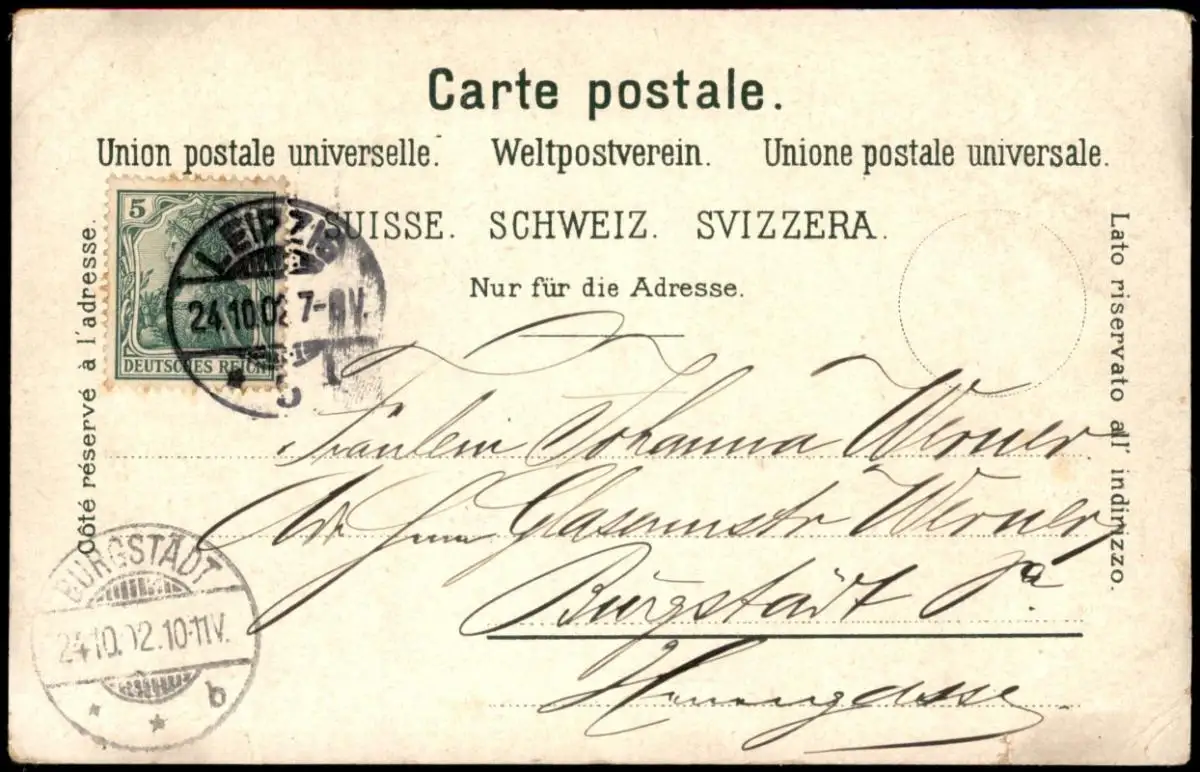 Carte postale.
Union postale universelle. Weltpostverein. Unione postale universale.
SUISSE. SCHWEIZ. SVIZZERA.
Nur für die Adresse.
Côté réservé à l'adresse.
Lato riservato all' indirizzo.
5
DEUTSCHES REICH
LEIPZIG
24.10.02 7-8V.
Fräulein Johanna Werner
Glasermstr Werner
Burgstädt
BURGSTÄDT
24.10.02.10-11V.
b